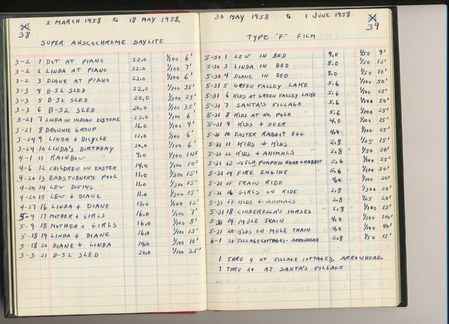 2 MARCH 1958 to 18 MAY 1958.
38
SUPER ANSCOCHROME DAYLITE
3-2 1 DOT AT PIANO 22.0 1/100 6'
3-2 2 LINDA AT PIANO 22.0 1/100 7'
3-2 3 DIANE AT PIANO 22.0 1/100 6'
3-3 4 B-52 SLED 22.0 1/100 35'
3-3 5 B-52 SLED 20.0 1/100 25'
3-3 6 B-52 SLED 20.0 1/100 35'
3-21 7 LINDA IN INDIAN COSTUME 22.0 1/100 6'
3-21 8 BROWNIE GROUP 16.0 1/100 9'
3-24 9 LINDA & BICYCLE 12.0 1/100
3-24 10 LINDA'S BIRTHDAY 20.0 1/100 6'
4-1 11 RAINBOW 9.0 1/100
4-6 12 CHILDREN ON EASTER 19.0 1/100 10'
4-20 13 POOL 11.0 1/300 15'
4-20 14 LEW DIVING 11.0 1/300 15'
4-20 15 LEW & DIANE 11.0 1/300 15'
4-27 16 LINDA & DIANE 13.0 1/100 12'
5-9 17 MOTHER & GIRLS 16.0 1/100 7'
5-9 18 MOTHER & GIRLS 16.0 1/100 8'
5-18 19 LINDA & DIANE 16.0 1/100 15'
5-18 20 DIANE & LINDA 14.0 1/100 10'
3-3 21 B-52 SLED 20.0 1/100 25'
30 MAY 1958 to 1 JUNE 1958
39
TYPE "F" FILM
5-30 1 LEW IN BED 4.0 1/50 9'
5-30 3 LINDA IN BED 8.0 1/50 12'
5-30 4 DIANE IN BED 8.0 1/50 10'
5-31 5 GREEN VALLEY LAKE 5.6 1/100
5-31 6 KIDS AT GREEN VALLEY LAKE 5.6 1/100 50'
5-31 7 SANTA'S VILLAGE 5.6 1/100
5-31 8 KIDS AT NO. POLE 4.0 1/50
5-31 9 KIDS & DEER 4.0 1/50 15'
5-31 10 EASTER RABBIT EGG 4.0 1/50
5-31 11 KIDS & KIDS 2.8 1/25 15'
5-31 12 KIDS & ANIMALS 2.8 1/50 20'
5-31 13 PUMPKIN HEAD & RABBIT 5.6 1/100
5-31 14 FIRE ENGINE 5.6 1/50
5-31 15 TRAIN RIDE 4.0 1/100 20'
5-31 16 GIRLS ON RIDE 2.8 1/300 20'
5-31 17 KIDS & ANIMALS 2.8 20'
5-31 18 CINDERELLA'S HORSES 2.8 1/50 15'
5-31 19 MULE TRAIN 4.0 1/100
5-31 20 KIDS ON MULE TRAIN 4.0 1/100 40'
6-1 21 VILLAGE COTTAGES - ARROWHEAD 2.8 1/50 15'
1 THRU 4 AT VILLAGE COTTAGES, ARROWHEAD.
7 THRU 20 AT SANTA'S VILLAGE